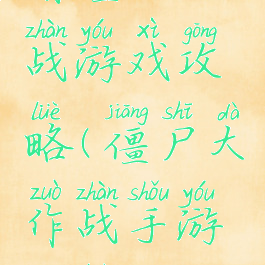 zhàn yóu xì gōng
战游戏攻
lüè jiāng shī dà
略(僵尸大
zuò zhàn shǒu yóu
作战手游